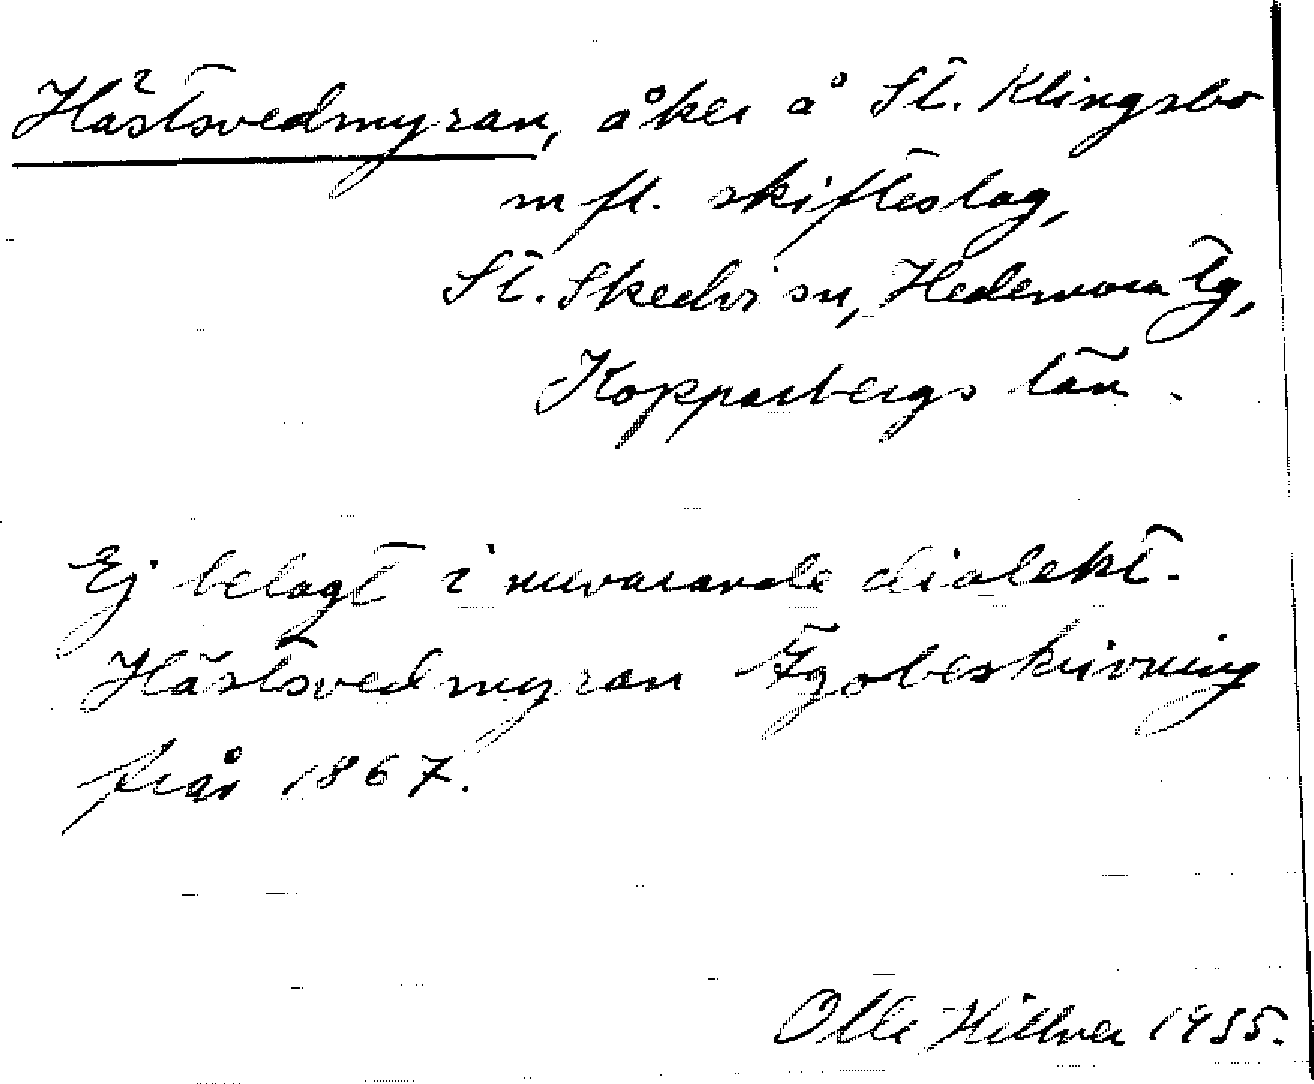 Hästsvedmyran, åker å St. Klingsbo
m fl. skifteslag,
St. Skedvi sn, Hedemora tg,
Kopparbergs län.
Ej belagt i nuvarande dialekt.
Hästsvedmyran Egobeskrivning
från 1867.
Olle Hillver 1935.